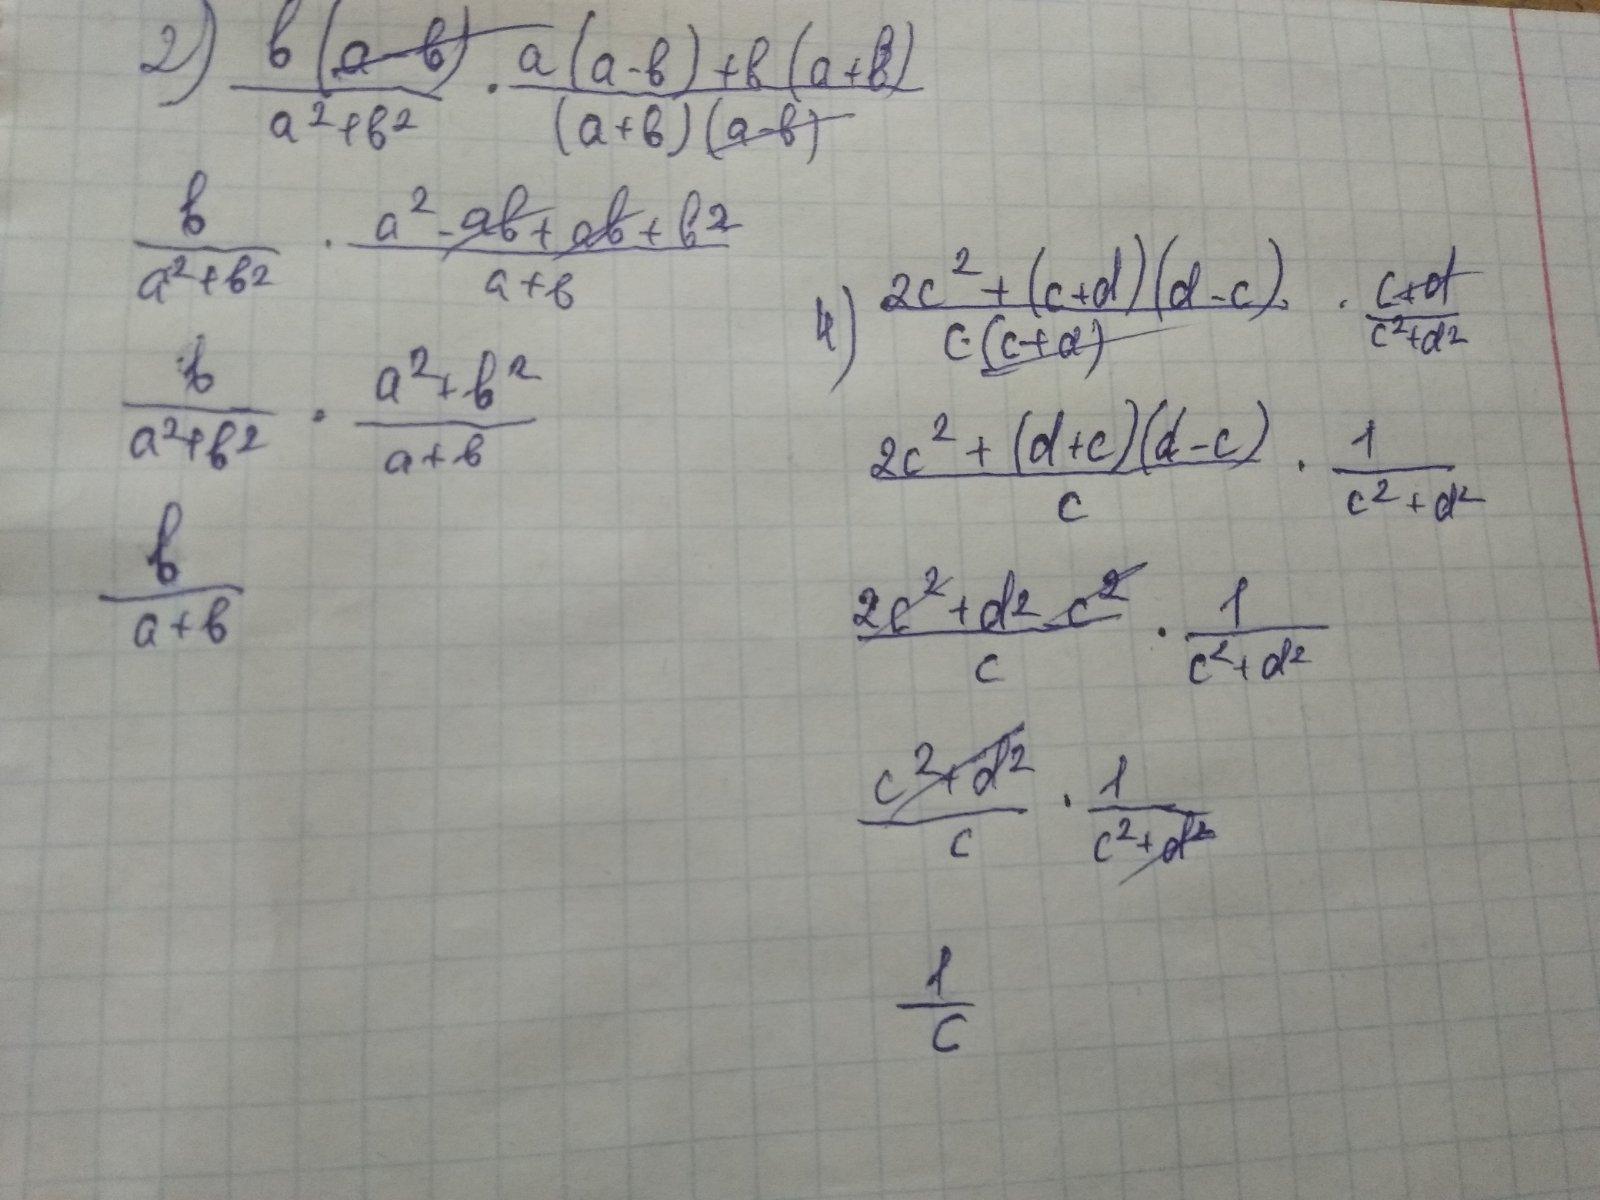 2) в(a-в)/(a²+в²) · (a(a-в)+в(a+в))/((a+в)(a-в))
в/(a²+в²) · (a²-aв+aв+в²)/(a+в)
в/(a²+в²) · (a²+в²)/(a+в)
в/(a+в)
4) (2c²+(c+d)(d-c))/(c·(c+d)) · (c+d)/(c²+d²)
(2c²+(d+c)(d-c))/c · 1/(c²+d²)
(2c²+d²-c²)/c · 1/(c²+d²)
(c²+d²)/c · 1/(c²+d²)
1/c